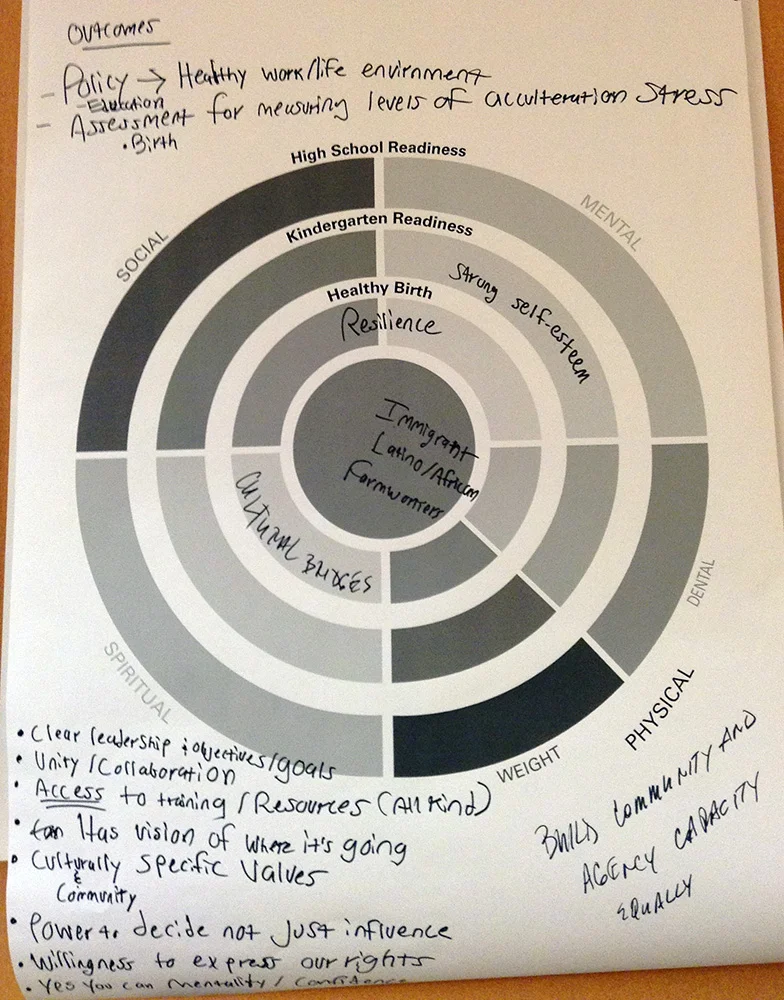 OUTCOMES
- Policy → Healthy work/life envirnment
- Edutation
- Assessment for measuring levels of acculteration Stress
• Birth
High School Readiness
Kindergarten Readiness
Healthy Birth
SOCIAL
MENTAL
Strong self-esteem
Resilience
Immigrant
Latino/African
Farmworkers
CULTURAL BRIDGES
SPIRITUAL
DENTAL
PHYSICAL
WEIGHT
• Clear leadership & objectives/goals
• Unity/Collaboration
• Access to training/Resources (All Kind)
• Has vision of where it's going
• Culturally Specific Values
&
Community
• Power to decide not Just influence
• Willingness to express our rights
• Yes You Can Mentality/Confidence
BUILD COMMUNITY AND
AGENCY CAPACITY
EQUALLY